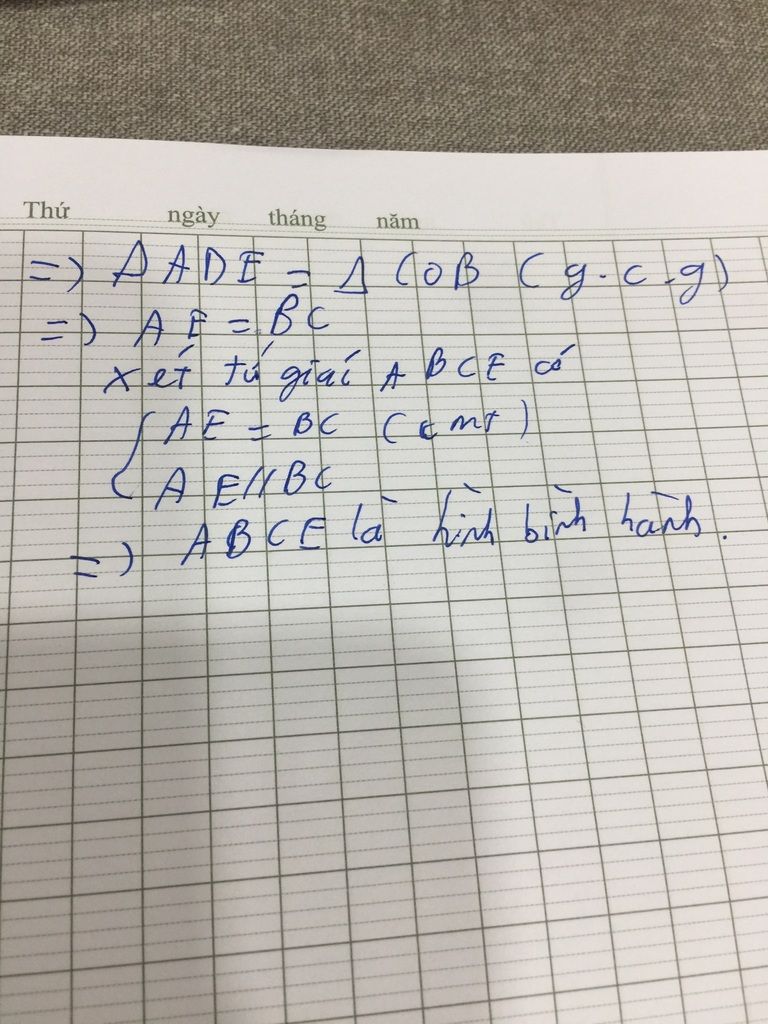 Thứ ngày tháng năm
=) Δ ADE = Δ COB (g.c.g)
=) AE = BC
xét tứ giác ABCE có
{ AE = BC (cmt)
AE // BC
=) ABCE là hình bình hành.